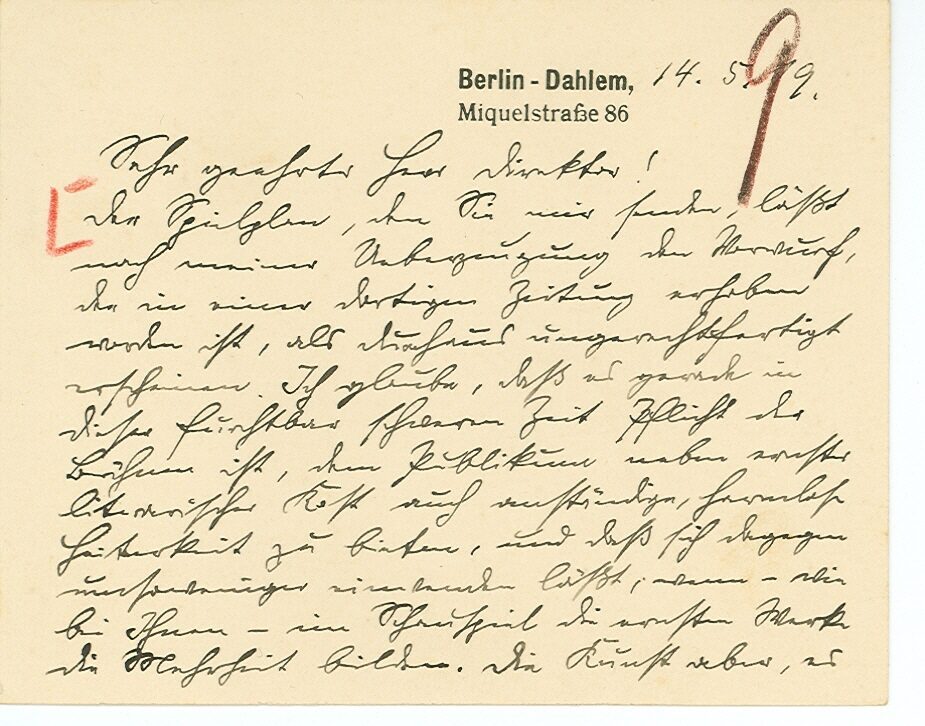 Berlin - Dahlem, 14. 5. 19.
Miquelstraße 86
9
Sehr geehrter Herr Direktor!
der Spielplan, den Sie mir senden, läßt
nach meiner Ueberzeugung den Vorwurf,
der in einer dortigen Zeitung erhoben
worden ist, als durchaus ungerechtfertigt
erscheinen. Ich glaube, daß es gerade in
dieser furchtbar schweren Zeit Pflicht der
Bühnen ist, dem Publikum neben ernster
literarischer Kost auch anständige, harmlose
Heiterkeit zu bieten, und daß sich dagegen
umsoweniger einwenden läßt, wenn – wie
bei Ihnen – im Schauspiel die ernsten Werke
die Mehrheit bilden. Die Kunst aber, es